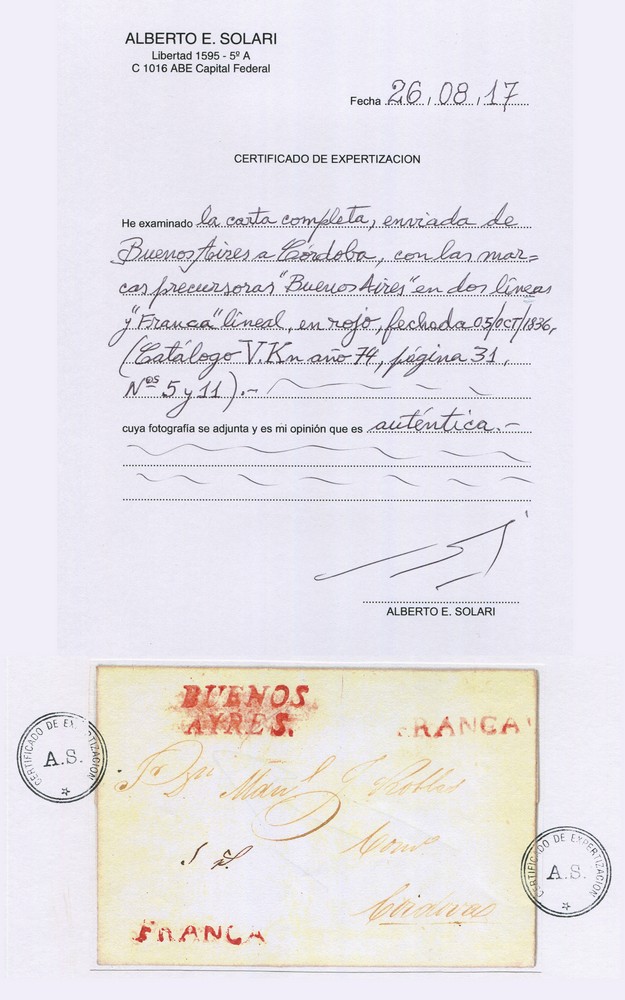 ALBERTO E. SOLARI
Libertad 1595 - 5º A
C 1016 ABE Capital Federal
Fecha 26 / 08 / 17
CERTIFICADO DE EXPERTIZACION
He examinado la carta completa, enviada de
Buenos Aires a Córdoba, con las mar=
cas precursoras "Buenos Aires" en dos líneas
y "Franca" lineal, en rojo, fechada 05/OCT/1836,
(Catálogo V.Kn año 74, página 31,
Nos 5 y 11).-
cuya fotografía se adjunta y es mi opinión que es auténtica.-
ALBERTO E. SOLARI
BUENOS
AYRES.
FRANCA
CERTIFICADO DE EXPERTIZACION
A.S.
Sr. Dn. Man.l J. Robles
CERTIFICADO DE EXPERTIZACION
A.S.
Cordova
FRANCA